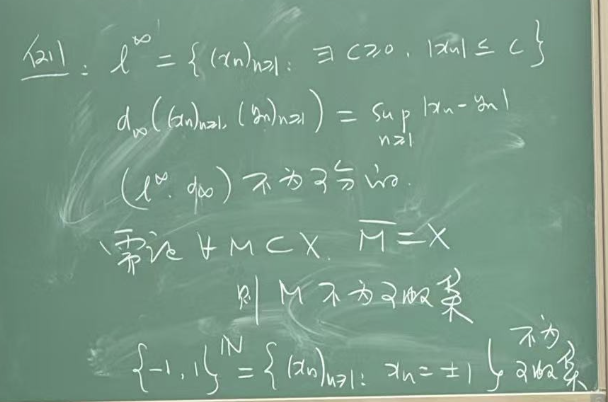 例: l^∞ = { (xn)n≥1: ∃ C≥0, |xn| ≤ C }
d∞((xn)n≥1, (yn)n≥1) = sup n≥1 |xn - yn|
(l^∞, d∞) 不为可分的.
需证 ∀ M ⊂ X, M̅ = X
则 M 不为可数集
{-1, 1}^ℕ = { (xn)n≥1: xn = ±1 } 不为可数集